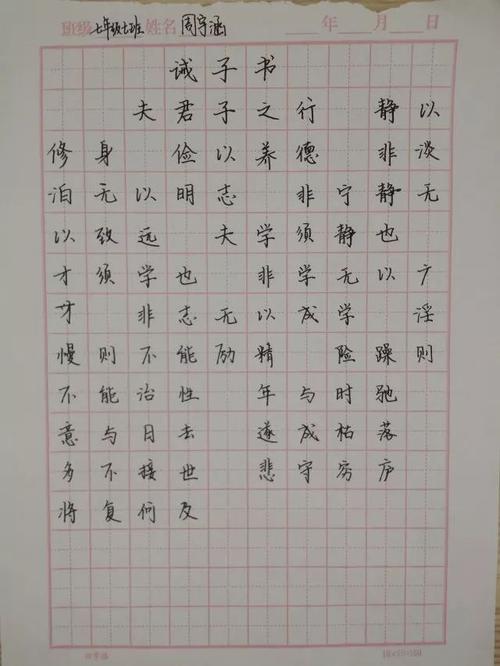 班级 七年级七班 姓名 周宇涵 年 月 日
诫子书
夫君子之行 静以
修身 俭以养德 非淡
泊无以明志 非宁静无
以致远 夫学须静也
才须学也 非学无以广
才 非志无以成学 淫
慢则不能励精 险躁则
不能治性 年与时驰
意与日去 遂成枯落
多不接世 悲守穷庐
将复何及